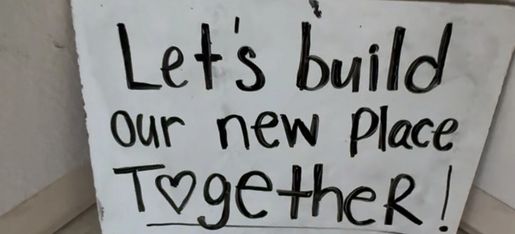 Let's build
our new place
T♡getheR!